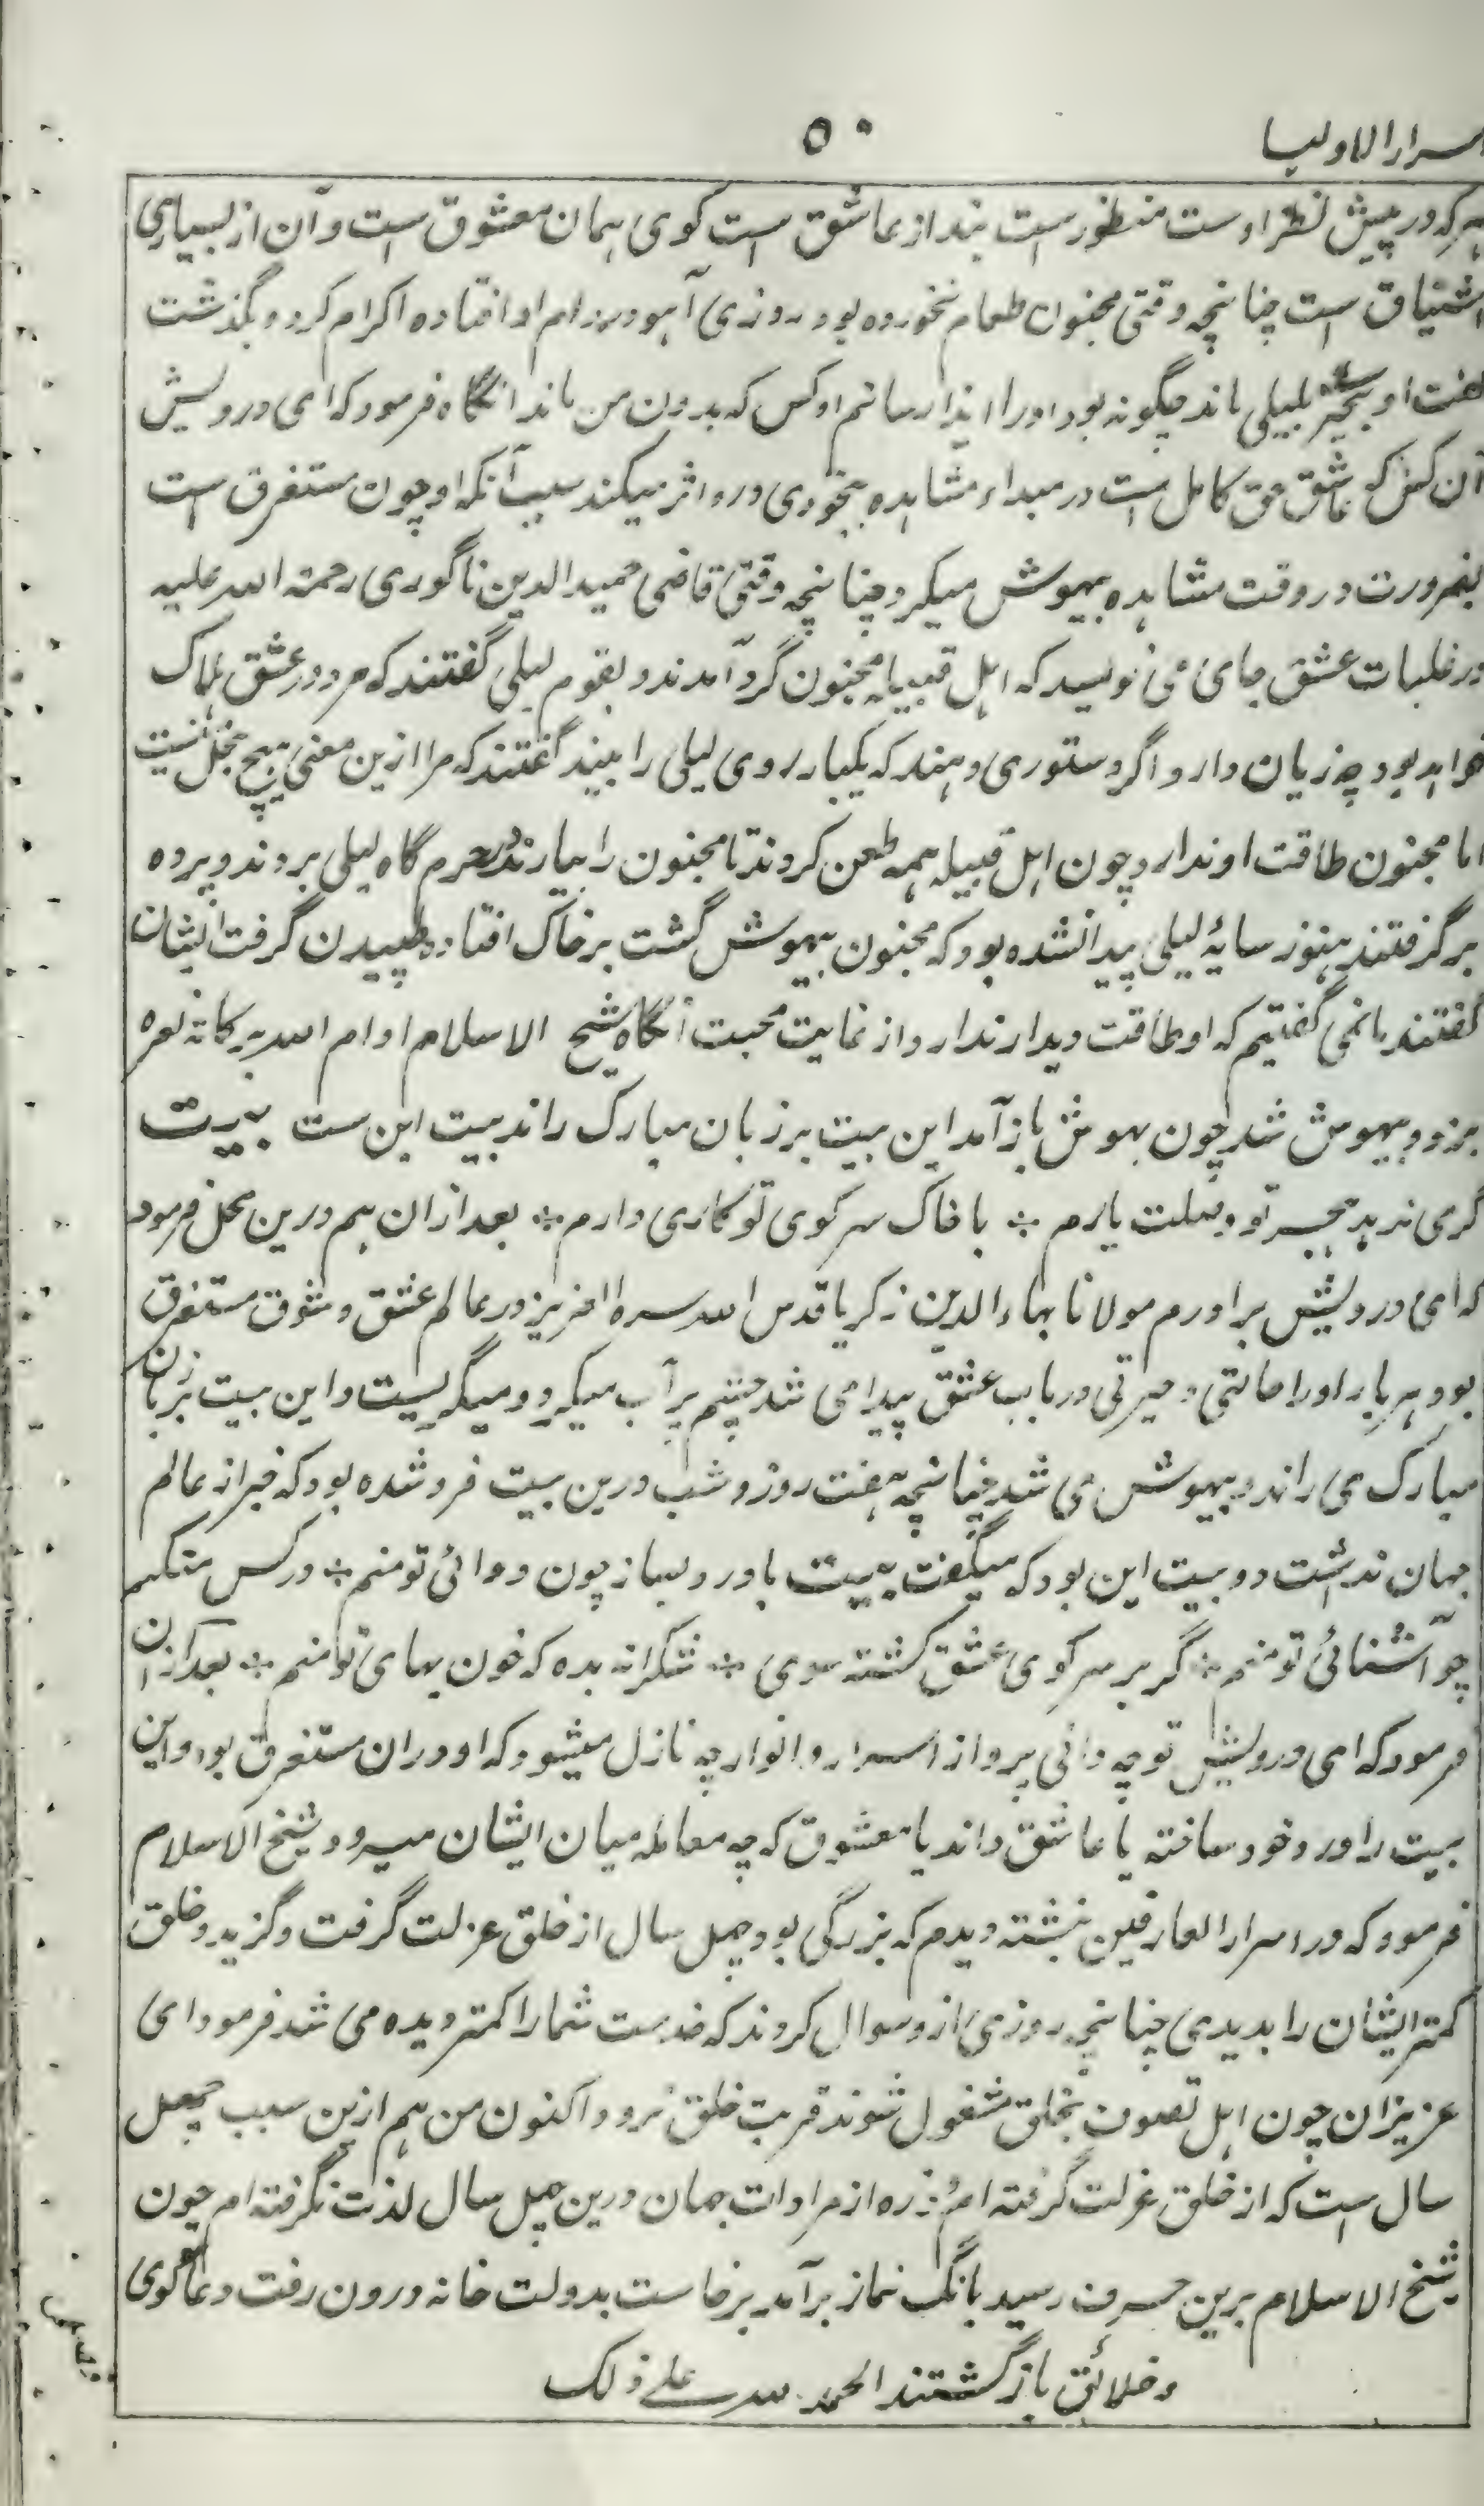 اسرار الاولیا
۵۰
ہر کہ در پیش نظر اوست منظورست بندار عاشق است گوی ہمان معشوق است و آن از بسیاری
اشتیاق است چنانچہ وقتی مجنون طعام نخوردہ بود روزی آہو در دام او افتادہ اکرام کرد و بگذشت
گفت او بچیزی بلیلی ماند چگونہ بود او را ایذا رسانم انگاہ فرمود کہ ای درویش
آن کس کہ عاشق حق کامل است در مبداء مشاہدہ بیخودی درو اثر میکند سبب آنکہ او چون مستغرق است
بضرورت در وقت مشاہدہ بیہوش میگردد چنانچہ وقتی قاضی حمید الدین ناگوری رحمۃ اللہ علیہ
در غلبات عشق جای می نویسد کہ اہل قبیلہ مجنون گرد آمدند و بقوم لیلی گفتند کہ مرد در عشق ہلاک
خواہد بود چہ زیان دارد اگر دستوری دہند کہ یکبار روی لیلی را بیند گفتند کہ مرا ازین معنی ہیچ بخل نیست
اما مجنون طاقت او ندارد چون اہل قبیلہ ہمہ طعن کردند تا مجنون را بیارند در حرم گاہ لیلی بردند و پردہ
برگرفتند ہنوز سایۂ لیلی پیدا نشدہ بود کہ مجنون بیہوش گشت بر خاک افتاد و طپیدن گرفت ایشان
گفتند ما نمی گفتیم کہ او طاقت دیدار ندارد از غایت محبت انگاہ شیخ الاسلام ادام اللہ برکاتہ نعرہ
بزد و بیہوش شد چون بہوش باز آمد این بیت بر زبان مبارک راند بیت این ست بیت
گر می ندہد ہجر تو وصلت یارم ؞ با خاک سر کوی تو کاری دارم ؞ بعد ازان ہم درین محل فرمود
کہ ای درویش برادرم مولانا بہاء الدین زکریا قدس اللہ سرہ العزیز در عالم عشق و شوق مستغرق
بود ہر بار او را حالتی و حیرتی در باب عشق پیدا می شد چشم پر آب میکرد و میگریست و این بیت بر زبان
مبارک می راند و بیہوش می شد چنانچہ ہفت روز و شب درین بیت فرو شدہ بود کہ خبر از عالم
جہان نداشت دو بیت این بود کہ میگفت بیت با درد بساز چون دوائی تو منم ؞ در کس منگر
چو آشنائی تو منم ؞ گر بر سر کوی عشق کشتہ شوی ؞ شکرانہ بدہ کہ خون بہای تو منم ؞ بعد ازان
فرمود کہ ای درویش تو چہ دانی برو از اسرار و انوار چہ نازل میشود کہ او دران مستغرق بود و این
بیت را ورد خود ساختہ یا عاشق داند یا معشوق کہ چہ معاملہ میان ایشان میرود شیخ الاسلام
فرمود کہ در اسرار العارفین نبشتہ دیدم کہ بزرگی بود چہل سال از خلق عزلت گرفت و گزید و خلق
کمتر ایشان را بدیدی چنانچہ روزی ازو سوال کردند کہ خدمت شما را کمتر دیدہ می شد فرمود ای
عزیزان چون اہل تصوف بخلق مشغول شوند قربت خلق نرود اکنون من ہم ازین سبب چہل
سال است کہ از خلق عزلت گرفتہ ام و ذرہ از مرادات جہان درین چہل سال لذت نگرفتہ ام چون
شیخ الاسلام برین حرف رسید بانگ نماز برآمد برخاست بدولت خانہ درون رفت دعاگوی
و خلائق بازگشتند الحمد للہ علے ذلک